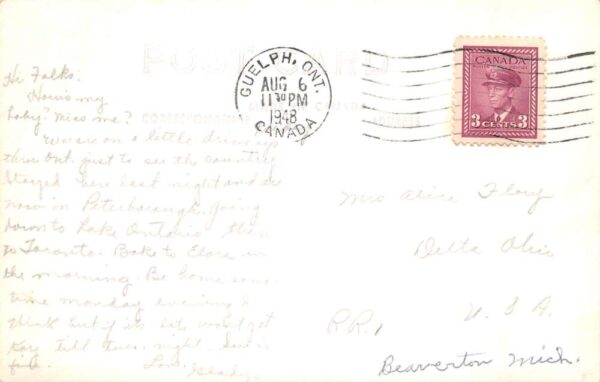 POST CARD
GUELPH, ONT.
AUG 6
11 30 PM
1948
CANADA
CANADA
3 CENTS 3
CORRESPONDENCE
ADDRESS
Hi Folks.
How's my
baby? Miss me?
We are on a little drive up
thru Ont. just to see the country
Stayed here last night and are
now in Peterborough. Going
down to Lake Ontario then
to Toronto. Back to Elora in
the morning. Be home some
time Monday evening I
think but if its late won't get
Kay till Tues. night. Sue is
fine. Love
Gladys
Mrs Alice Flory
Delta Ohio
R.R. 1 U. S. A.
Beaverton Mich.